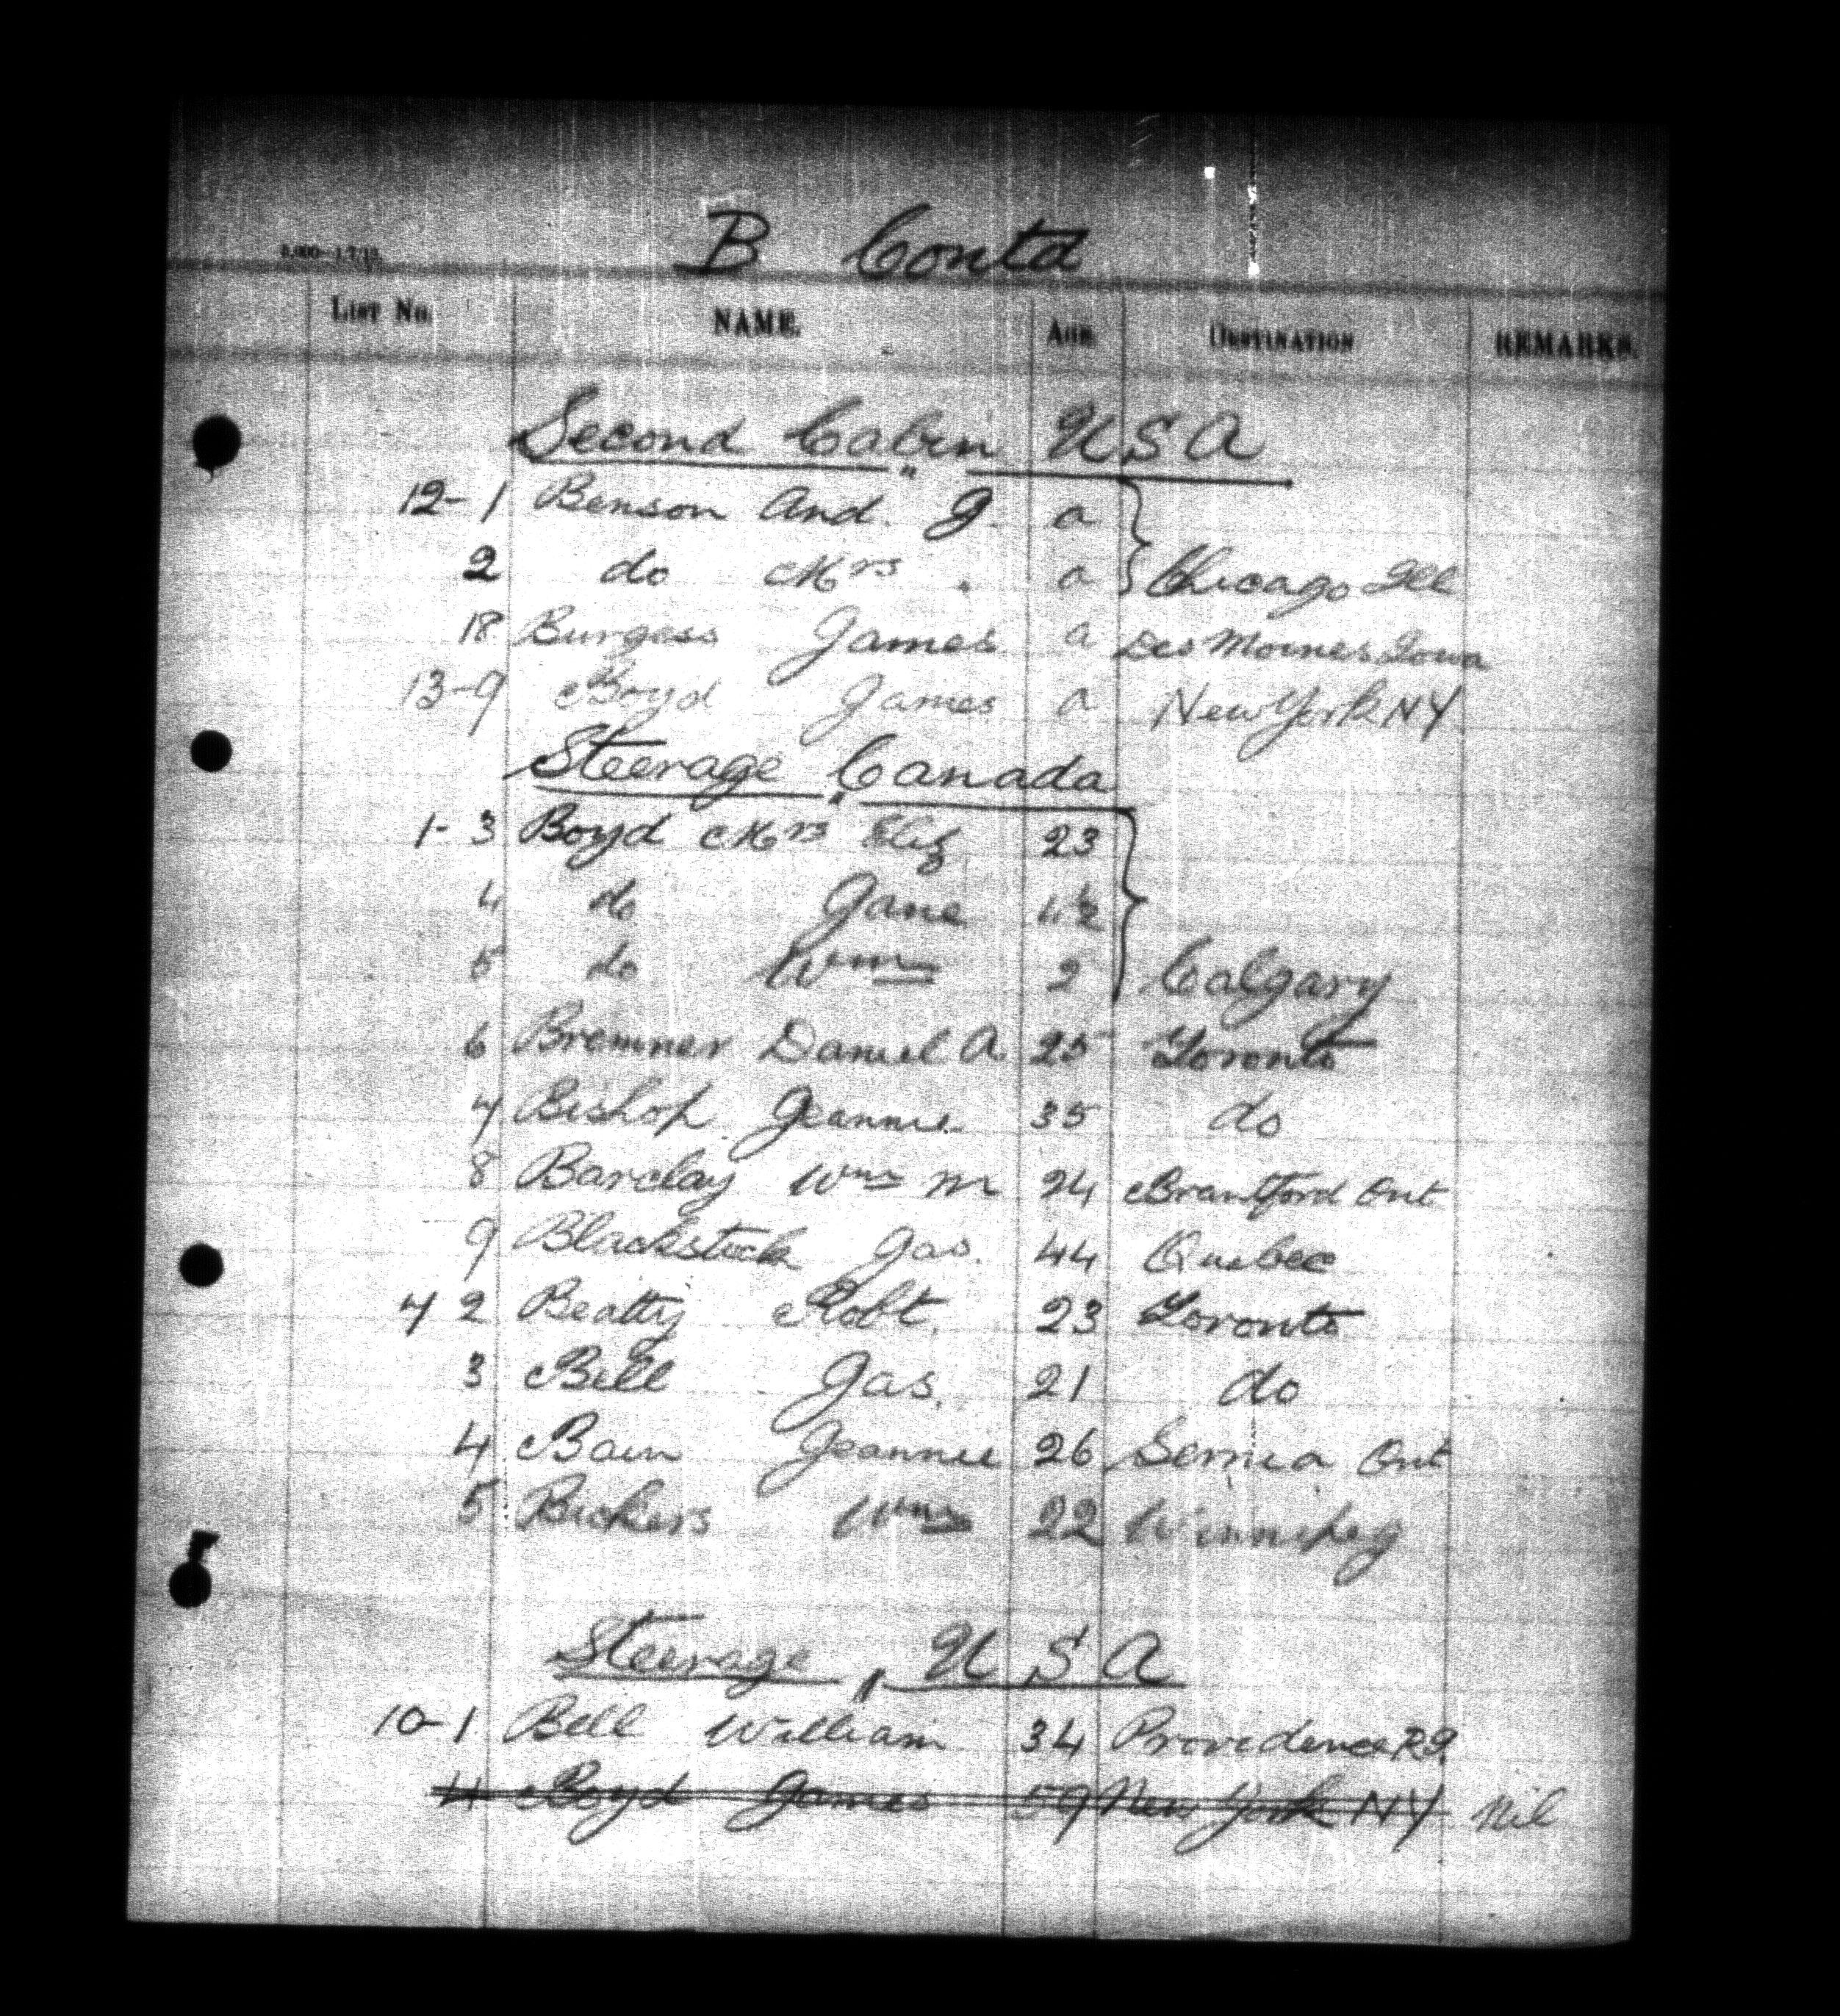 B Contd
List No. NAME. Age. Destination REMARKS.
Second Cabin " U S A
12-1 Benson And. J. a
2 do Mrs. a Chicago Ill
18 Burgess James a Des Moines Iowa
13-9 Boyd James a New York NY
Steerage " Canada
1-3 Boyd Mrs Eliz 23
4 do Jane
5 do Wm 2 Calgary
6 Bremner Daniel A. 25 Toronto
7 Bishop Jeannie 35 do
8 Barclay Wm M 24 Brantford Ont
9 Blackstock Jas. 44 Quebec
7 2 Beatty Robt. 23 Toronto
3 Bell Jas. 21 do
4 Bain Jeannie 26 Sernia Ont
5 Bickers Wm 22 Winnipeg
Steerage " U S A
10-1 Bell William 34 Providence R.I.
11 Boyd James 59 New York NY Nil